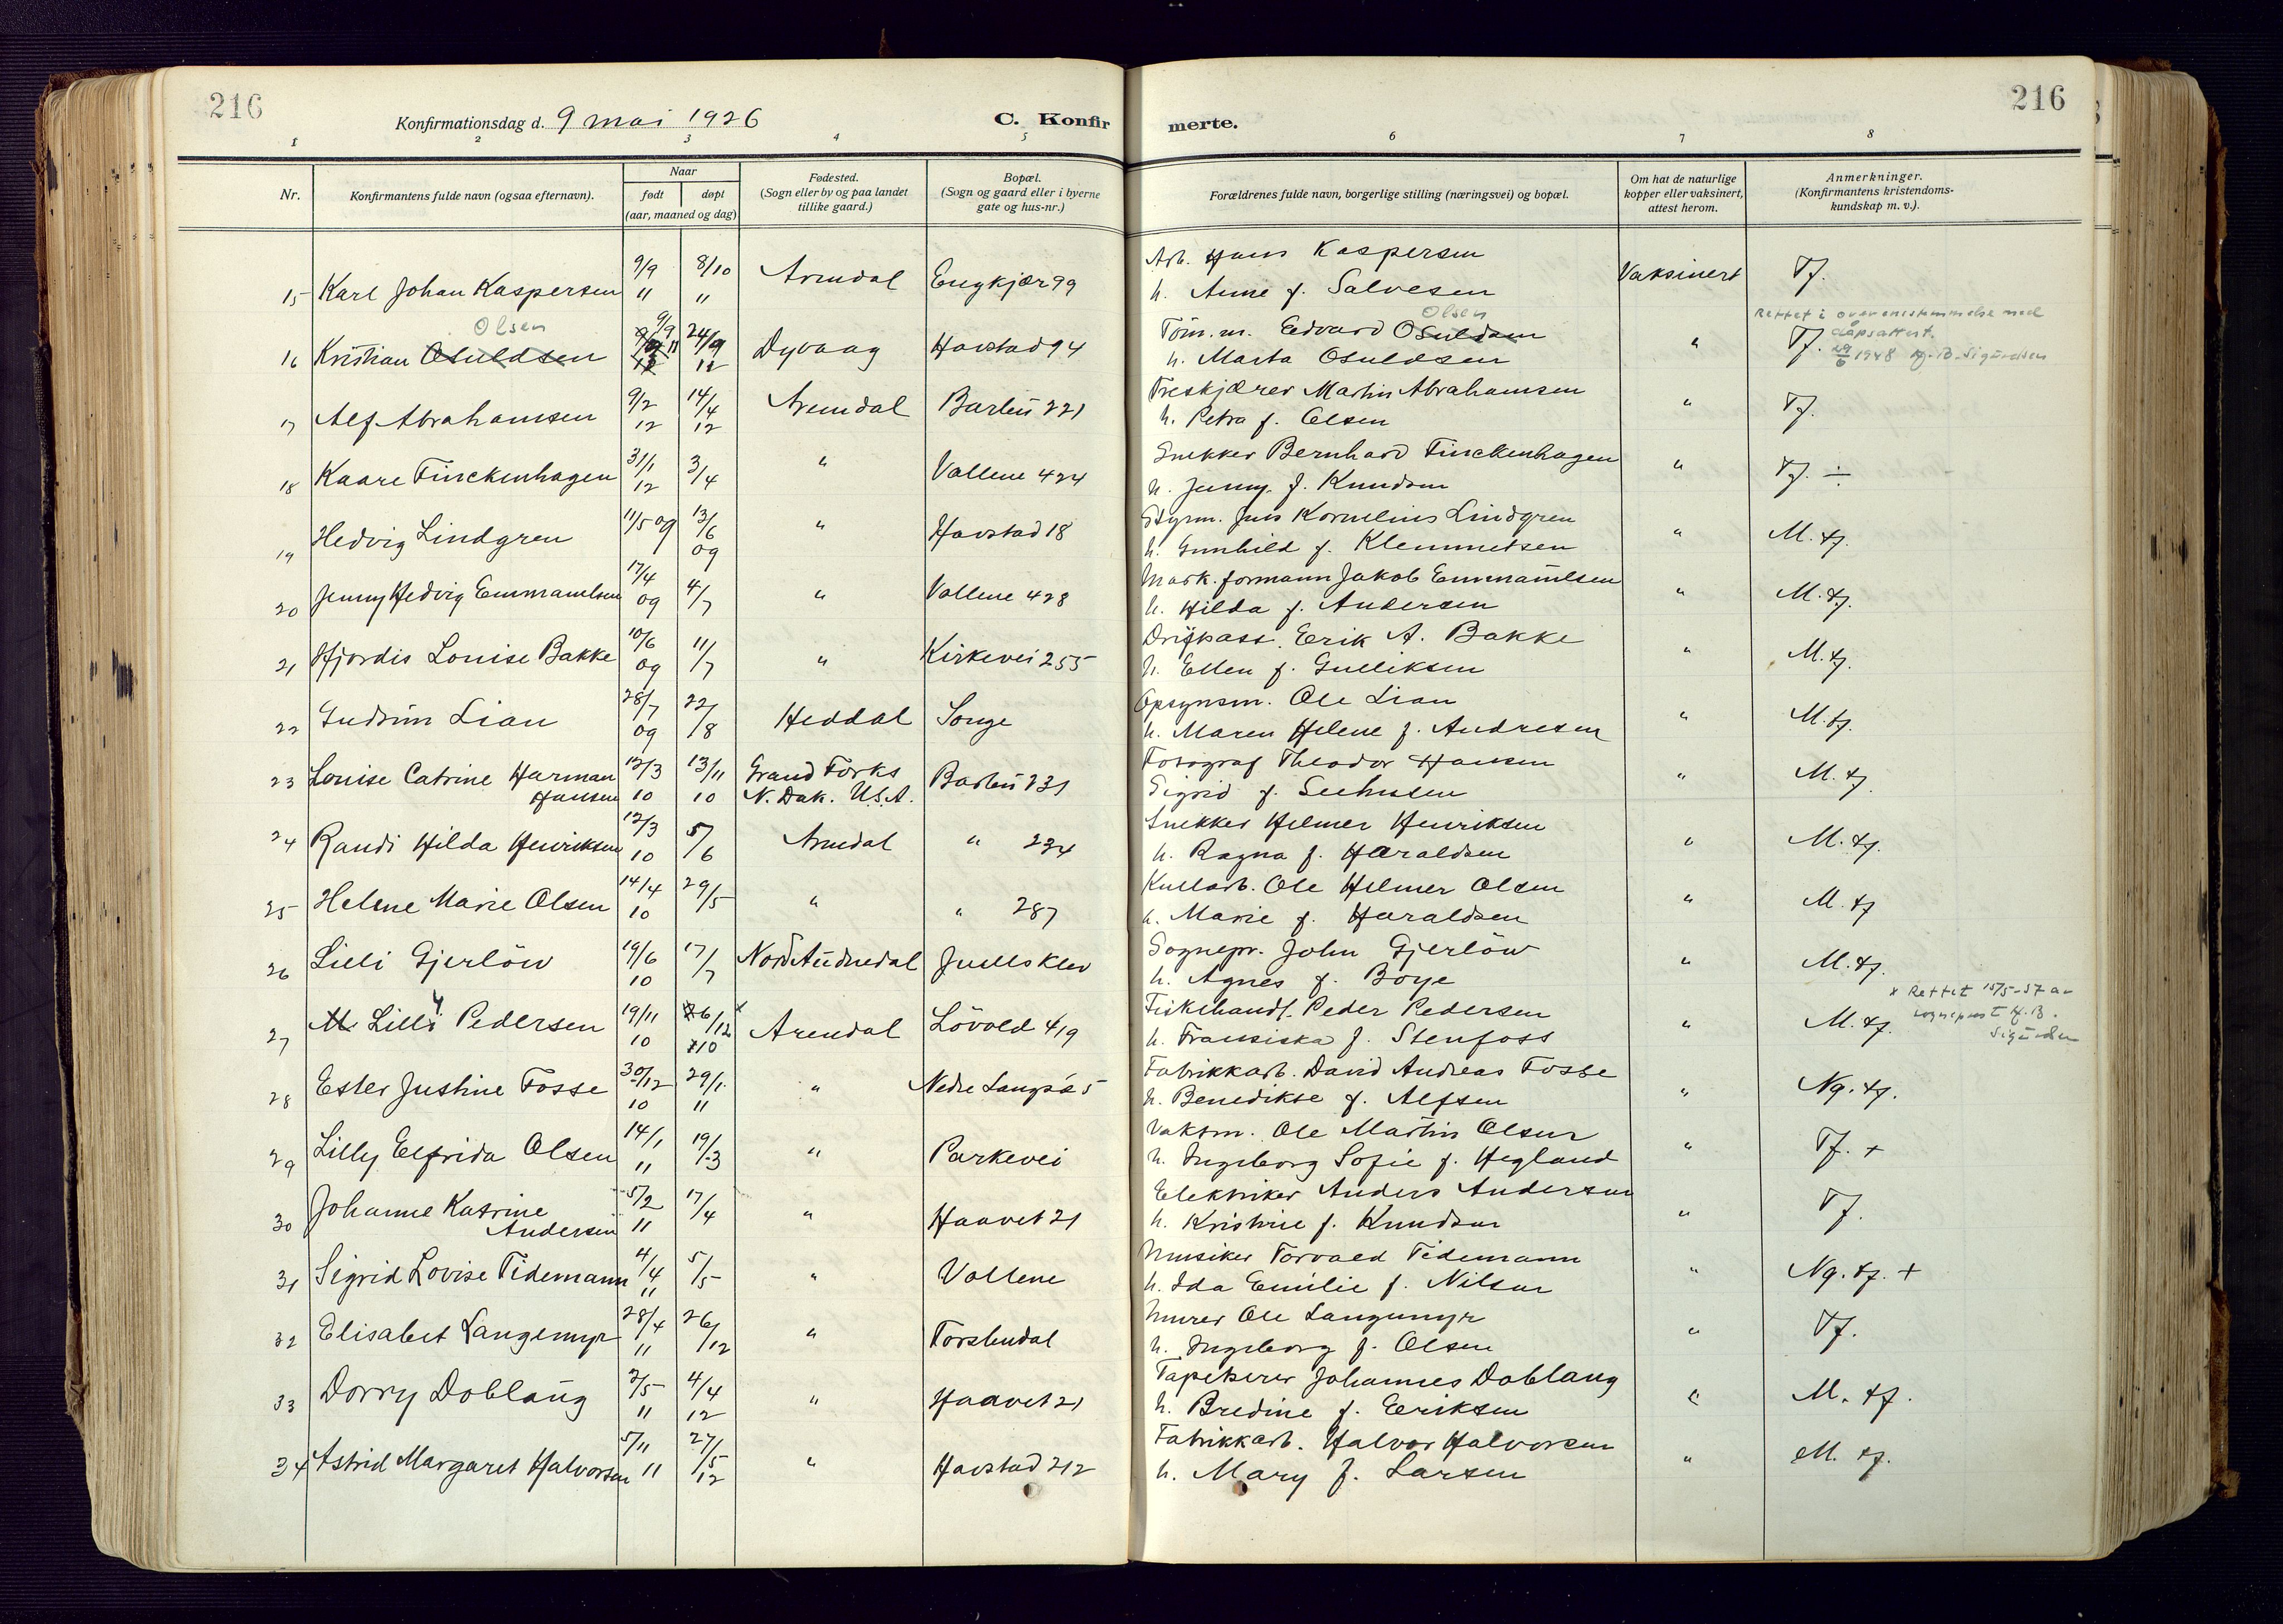 216
Konfirmationsdag d. 9 mai 1926
C. Konfir
merte.
216
1 2 3 4 5 6 7 8
Nr.
Konfirmantens fulde navn (ogsaa efternavn).
Naar
født døpt
(aar, maaned og dag)
Fødested.
(Sogn eller by og paa landet
tillike gaard.)
Bopæl.
(Sogn og gaard eller i byerne
gate og hus-nr.)
Forældrenes fulde navn, borgerlige stilling (næringsvei) og bopæl.
Om hat de naturlige
kopper eller vaksinert,
attest herom.
Anmerkninger.
(Konfirmantens kristendoms-
kundskap m. v.).
15 Karl Johan Kaspersen 9/9 11 8/10 11 Arendal Engkjær 99 Arb. Hans Kaspersen Vaksinert Tf.
h. Anne f. Salvesen
Olsen
16 Kristian Osuldsen 9/9 11 24/9 12 Dyvaag Havstad 94 Töm.m. Edvard Osuldsen Olsen " Tf.
h. Marta Osuldsen
Rettet i overensstemmelse med
dåpsattest.
29/6 1948 Hj. B. Sigurdsen
17 Alf Abrahamsen 9/2 12 14/4 12 Arendal Barbu 221 Treskjærer Martin Abrahamsen " Tf.
h. Petra f. Olsen
18 Kaare Finckenhagen 31/1 12 3/4 " Vollene 424 Snekker Bernhard Finckenhagen " Tf. ÷
h. Jenny f. Knudsen
19 Hedvig Lindgren 11/5 09 13/6 09 " Havstad 18 Styrm. Jens Kornelius Lindgren " M. tf.
h. Gunhild f. Klemmetsen
20 Jenny Hedvig Emmanuelsen 17/4 09 4/7 " Vollene 428 Mask.formann Jakob Emmanuelsen " M. tf.
h. Hilda f. Andersen
21 Hjördis Louise Bakke 10/6 09 11/7 " Kirkevei 255 Erik A. Bakke " M. tf.
h. Ellen f. Gulliksen
22 Gudrun Lian 28/7 09 22/8 Heddal Songe Opsynsm. Ole Lian " M. tf.
h. Maren Helene f. Andresen
23 Louise Catrine Harman 12/3 10 13/11 10 Grand Forks Barbu 231 Fotograf Theodor Hansen " M. tf.
Hansen N. Dak. U.S.A. Sigrid f.
24 Randi Hilda Henriksen 12/3 10 5/6 Arendal " 234 Snekker Helmer Henriksen " M. tf.
h. Ragna f. Haraldsen
25 Helene Marie Olsen 14/4 10 29/5 " " 287 Kullarb. Ole Helmer Olsen " M. tf
h. Marie f. Haraldsen
26 Lilli Gjerlöw 19/6 10 17/7 Nord Audnedal Juellsklev Sognepr. John Gjerlöw " M. tf.
h. Agnes f. Boye
27 M. Lilly Pedersen 19/11 10 26/12 10 x Arendal Lövold 419 Fiskehandl. Peder Pedersen " M. tf.
h. Fransiska f. Stenfoss
x Rettet 15/5-57 av
sogneprest Hj. B.
Sigurdsen
28 Ester Justine Fosse 30/12 10 29/1 11 " Nedre Langsæ 5 Fabrikkarb. David Andreas Fosse " Ng. tf.
h. Benedikte f. Alfsen
29 Lilly Elfrida Olsen 14/1 11 19/3 " Parkevei Vaktm. Ole Martin Olsen " Tf. +
h. Ingeborg Sofie f. Hegland
30 Johanne Katrine 5/2 11 17/4 " Haavet 21 Elektriker Anders Andersen " Tf.
Andersen h. Kristine f. Knudsen
31 Sigrid Lovise Tidemann 4/4 11 5/5 " Vollene Musiker Torvald Tidemann " Ng. tf. +
h. Ida Emilie f. Nilsen
32 Elisabet Langemyr 28/4 11 26/12 " Torsbudal Murer Ole Langemyr " Tf.
h. Ingeborg f. Olsen
33 Dorry Doblaug 2/5 11 4/4 12 " Haavet 21 Tapetserer Johannes Doblaug " M. tf.
h. Bredine f. Eriksen
34 Astrid Margaret Halvorsen 5/11 11 27/5 12 " Havstad 212 Fabrikkarb. Halvor Halvorsen " M. tf.
h. Mary f. Larsen